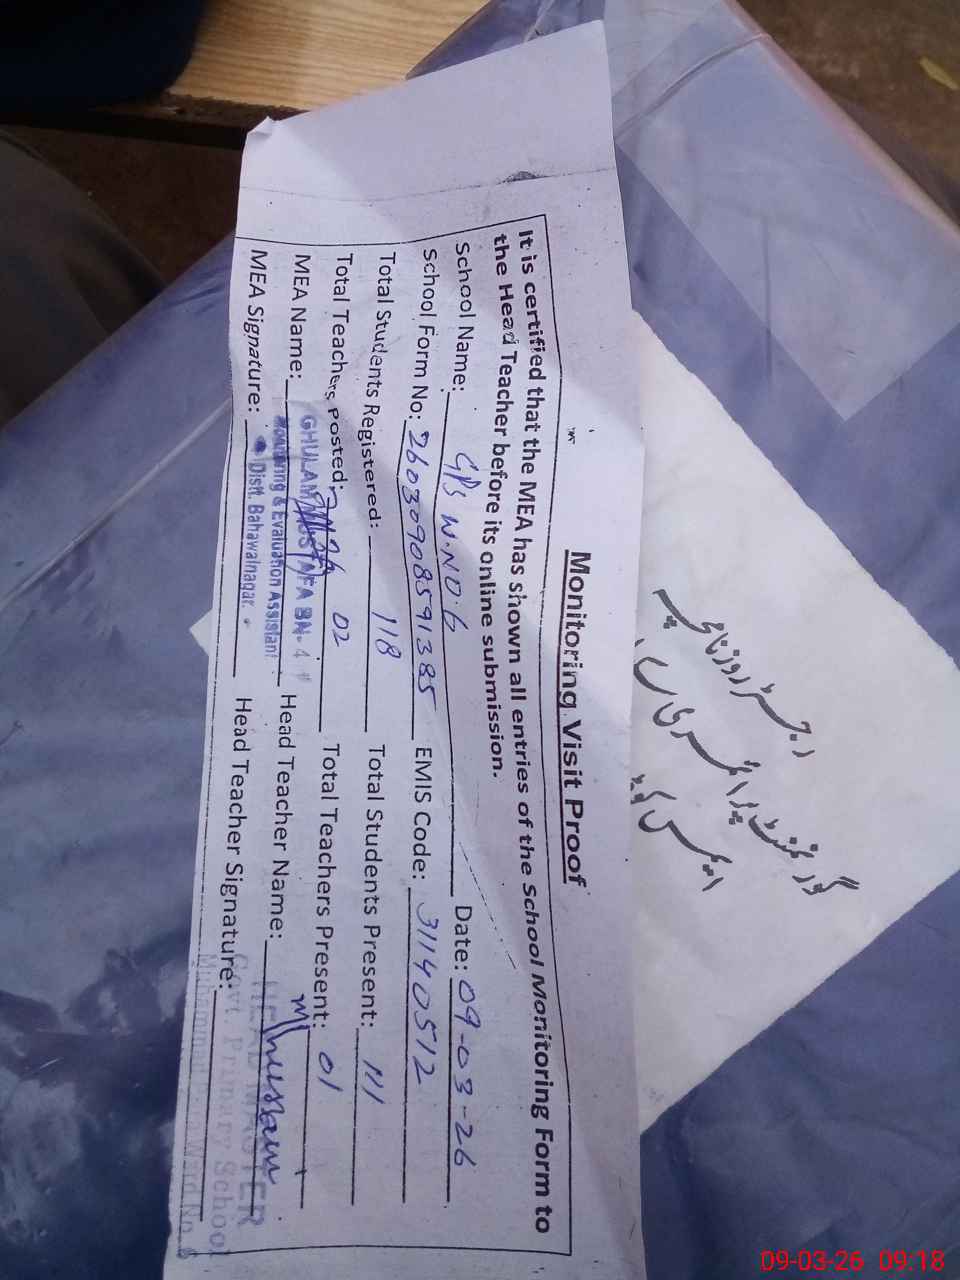 Monitoring Visit Proof
It is certified that the MEA has shown all entries of the School Monitoring Form to
the Head Teacher before its online submission.
School Name: GPS W.NO.6 Date: 09-03-26
School Form No: 26030908591385 EMIS Code: 31140512
Total Students Registered: 118 Total Students Present: 111
Total Teachers Posted: 02 Total Teachers Present: 01
MEA Name: GHULAM MUSTAFA BN-4 Head Teacher Name:
Monitoring & Evaluation Assistant
MEA Signature: Distt. Bahawalnagar. Head Teacher Signature:
HEAD MASTER
Govt. Primary School
Muhammad Ward No. 6
رجسٹر روزنامچہ
گورنمنٹ پرائمری
ایمس کوڈ
09-03-26 09:18